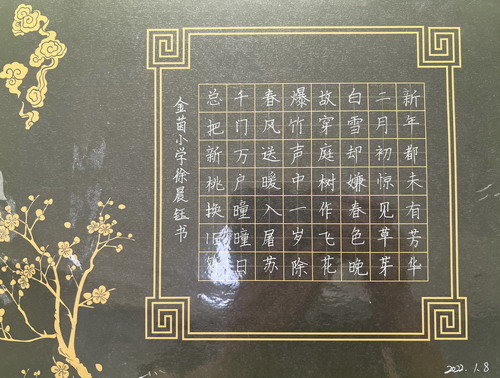 新年都未有芳华
二月初惊见草芽
白雪却嫌春色晚
故穿庭树作飞花
爆竹声中一岁除
春风送暖入屠苏
千门万户曈曈日
总把新桃换旧
金茵小学徐晨钰书
2022.1.8